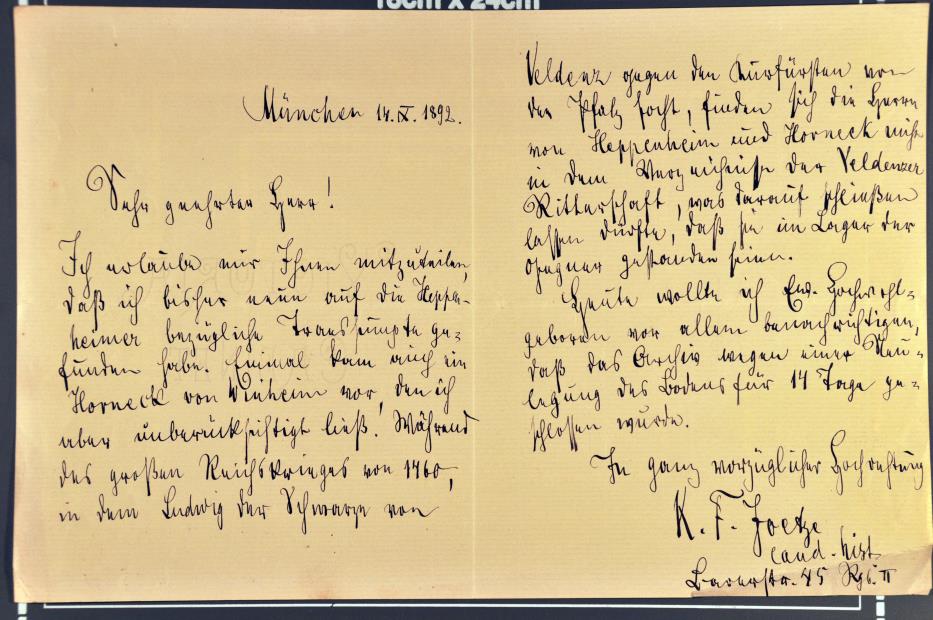 18cm x 24cm
München 14. IX. 1892.
Sehr geehrter Herr!
Ich erlaube mir Ihnen mitzuteilen,
daß ich bisher neun auf die Heppen-
heimer bezügliche Transsumpte ge-
funden habe. Einmal kam auch ein
Horneck von Winheim vor, den ich
aber unberücksichtigt ließ. Während
des großen Reichskrieges von 1460,
in dem Ludwig der Schwarze von
Veldenz gegen den Kurfürsten von
der Pfalz focht, finden sich die Herrn
von Heppenheim und Horneck nicht
in dem Verzeichnisse der Veldenzer
Ritterschaft, was darauf schließen
lassen dürfte, daß sie im Lager der
Gegner gestanden seien.
Heute wollte ich Ew. Hochwohl-
geboren vor allem benachrichtigen,
daß das Archiv wegen einer Neu-
legung des Bodens für 14 Tage ge-
schlossen wurde.
In ganz vorzüglicher Hochachtung
K. F. Joetze
cand. hist.
45 Rgb. II